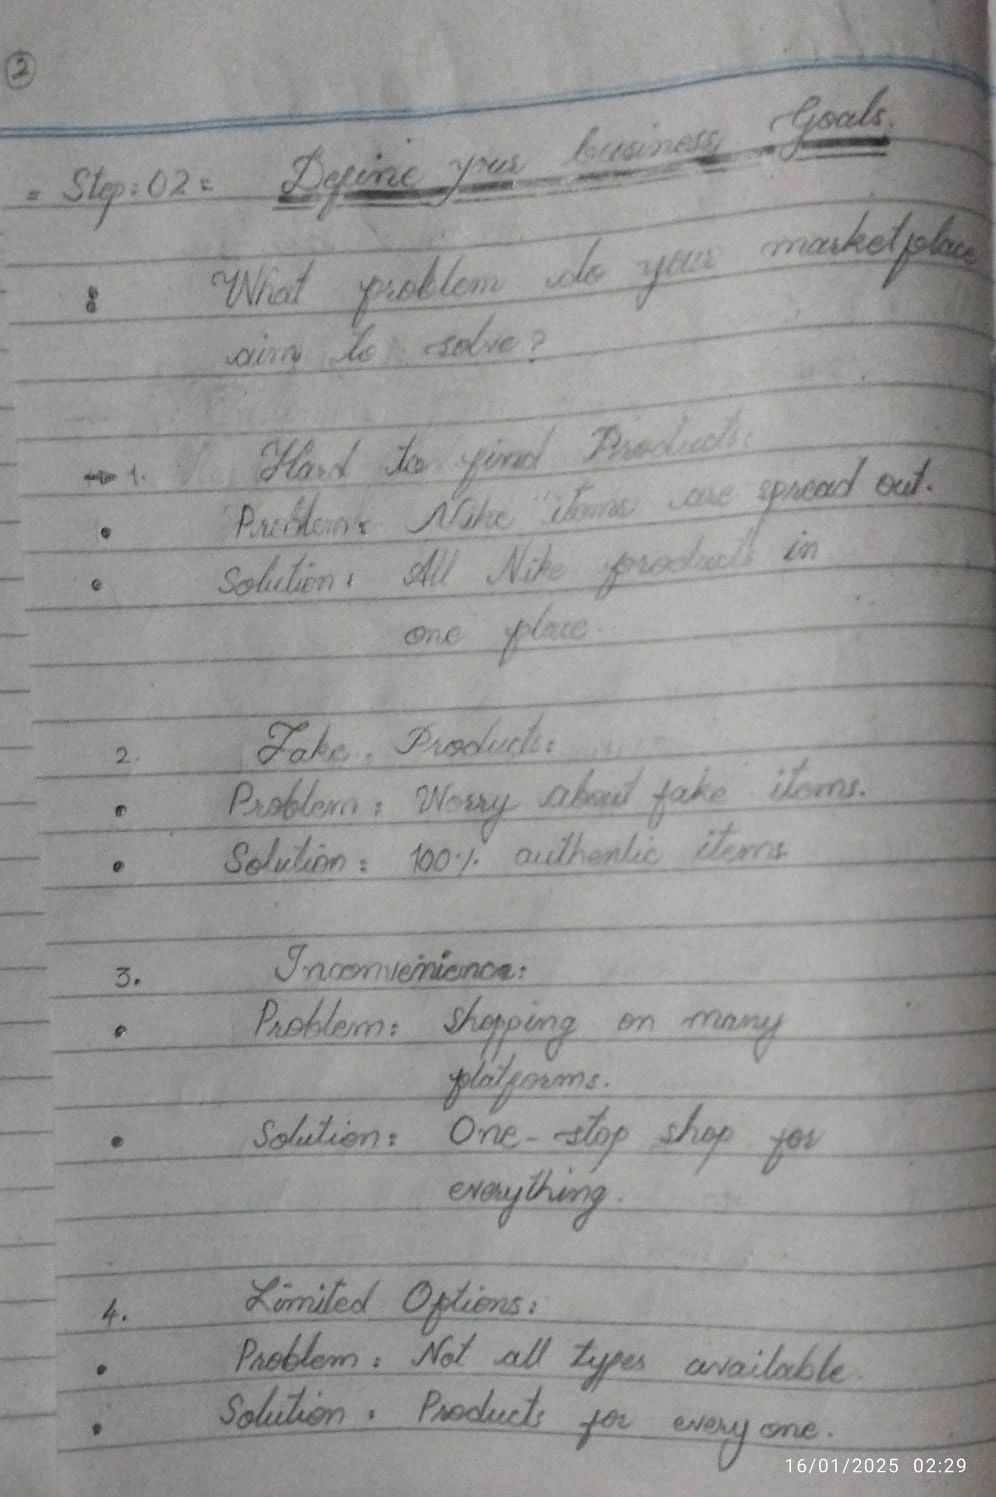 2
= Step: 02 = Define your business Goals.
What problem do your marketplace
aim to solve?
1. Hard to find Products:
• Problem: Nike items are spread out.
• Solution: All Nike products in
one place.
2. Fake Products:
• Problem: Worry about fake items.
• Solution: 100% authentic items
3. Inconvenience:
• Problem: Shopping on many
platforms.
• Solution: One-stop shop for
everything.
4. Limited Options:
• Problem: Not all types available.
• Solution: Products for everyone.
16/01/2025 02:29